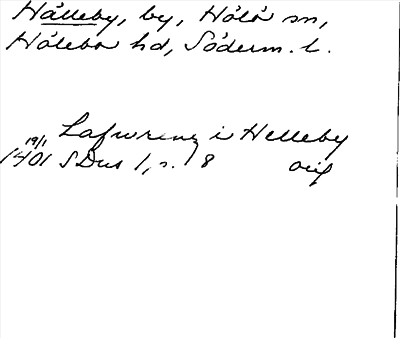 Hälleby, by, Hölö sn,
Hölebo hd, Söderm. l.
Lafwrenz i Helleby
19/1
1401 SDns 1, s. 8 orig